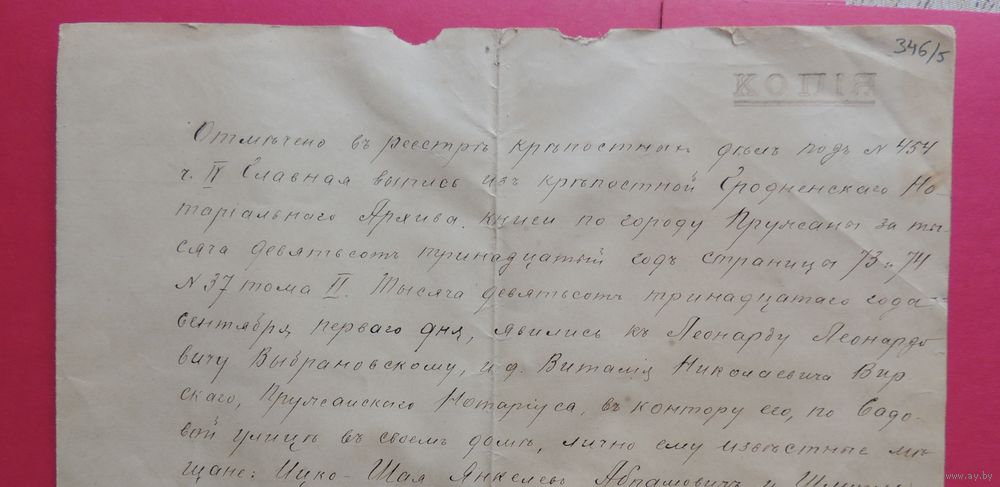 346/5
КОПІЯ
Отмѣчено въ реестрѣ крѣпостныхъ дѣлъ подъ N 454
ч. IV Главная выпись изъ крѣпостной Гродненскаго Но
таріальнаго Архива книги по городу Пружаны за ты
сяча девятьсотъ тринадцатый годъ страницы 73 и 74
N 37 тома II. Тысяча девятьсотъ тринадцатаго года
сентября перваго дня, явились къ Леонарду Леонардо
вичу Выбрановскому, и.д. Виталія Николаевича Вир
скаго, Пружанскаго Нотаріуса, въ контору его, по Садо
вой улицѣ въ своемъ домѣ, лично ему извѣстные мѣ
щане: Ицко-Шая Янкелевъ Абрамовичъ и
www.ay.by